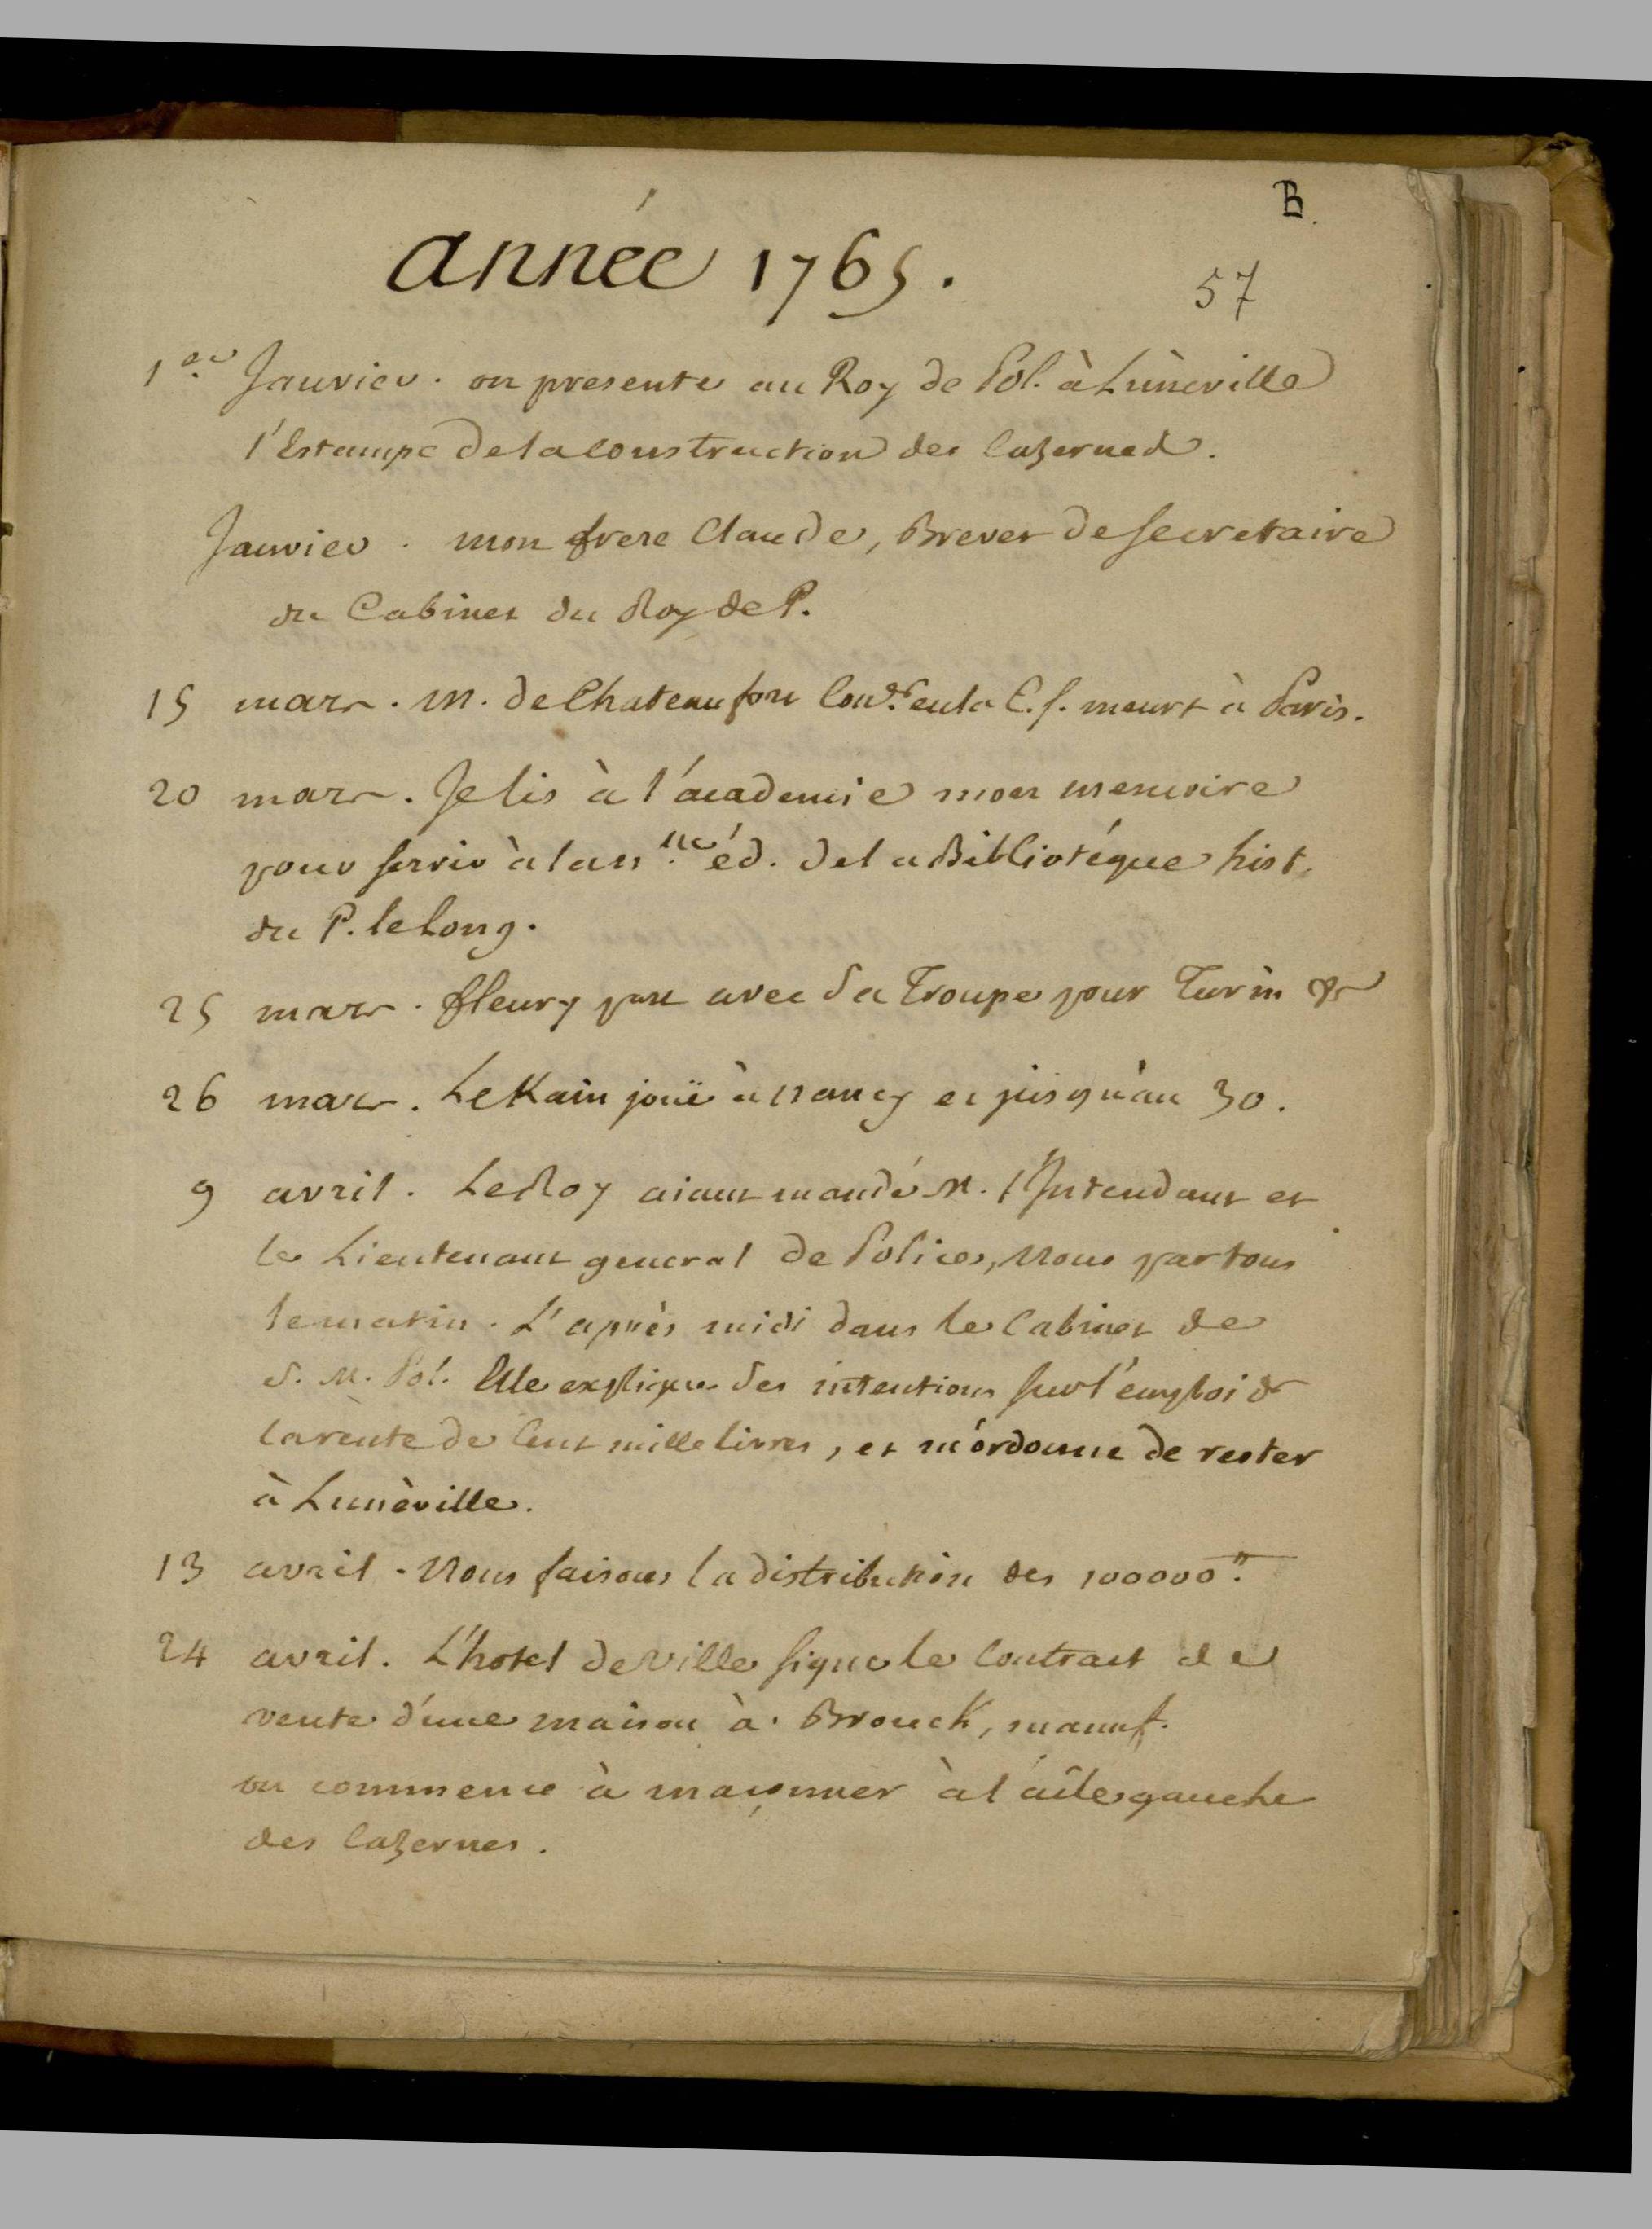 B.
année 1765.
57
1.er Janvier. on presente au Roy de Pol. à Luneville
l'Estampe de la construction des Cazernes.
Janvier. mon frere Claude, Brevet de secretaire
du Cabinet du Roy de P.
15 mars. M. de Chateaufort Con.er en la C. S. meurt à Paris.
20 mars. Je lis à l'academie mon memoire
pour servir à la n.lle éd. de la Bibliotéque hist.
du P. le Long.
25 mars. fleury part avec sa Troupe pour Turin &
26 mars. LeKain joüe à Nancy et jusqu'au 30.
9 avril. Le Roy aiant mandé M. l'Intendant et
le Lieutenant general de Police, Nous partons
le matin. L'après midi dans le Cabinet de
S. M. Pol. Elle explique ses intentions sur l'emploi de
la rente de Cent mille livres, et m'ordonne de rester
à Lunéville.
13 avril. Nous faisons la distribution des 100000.tt
24 avril. L'hotel de Ville signe le Contract de
vente d'une maison à Brouck, manuf.
on commence à maçonner à l'aîle gauche
des Cazernes.